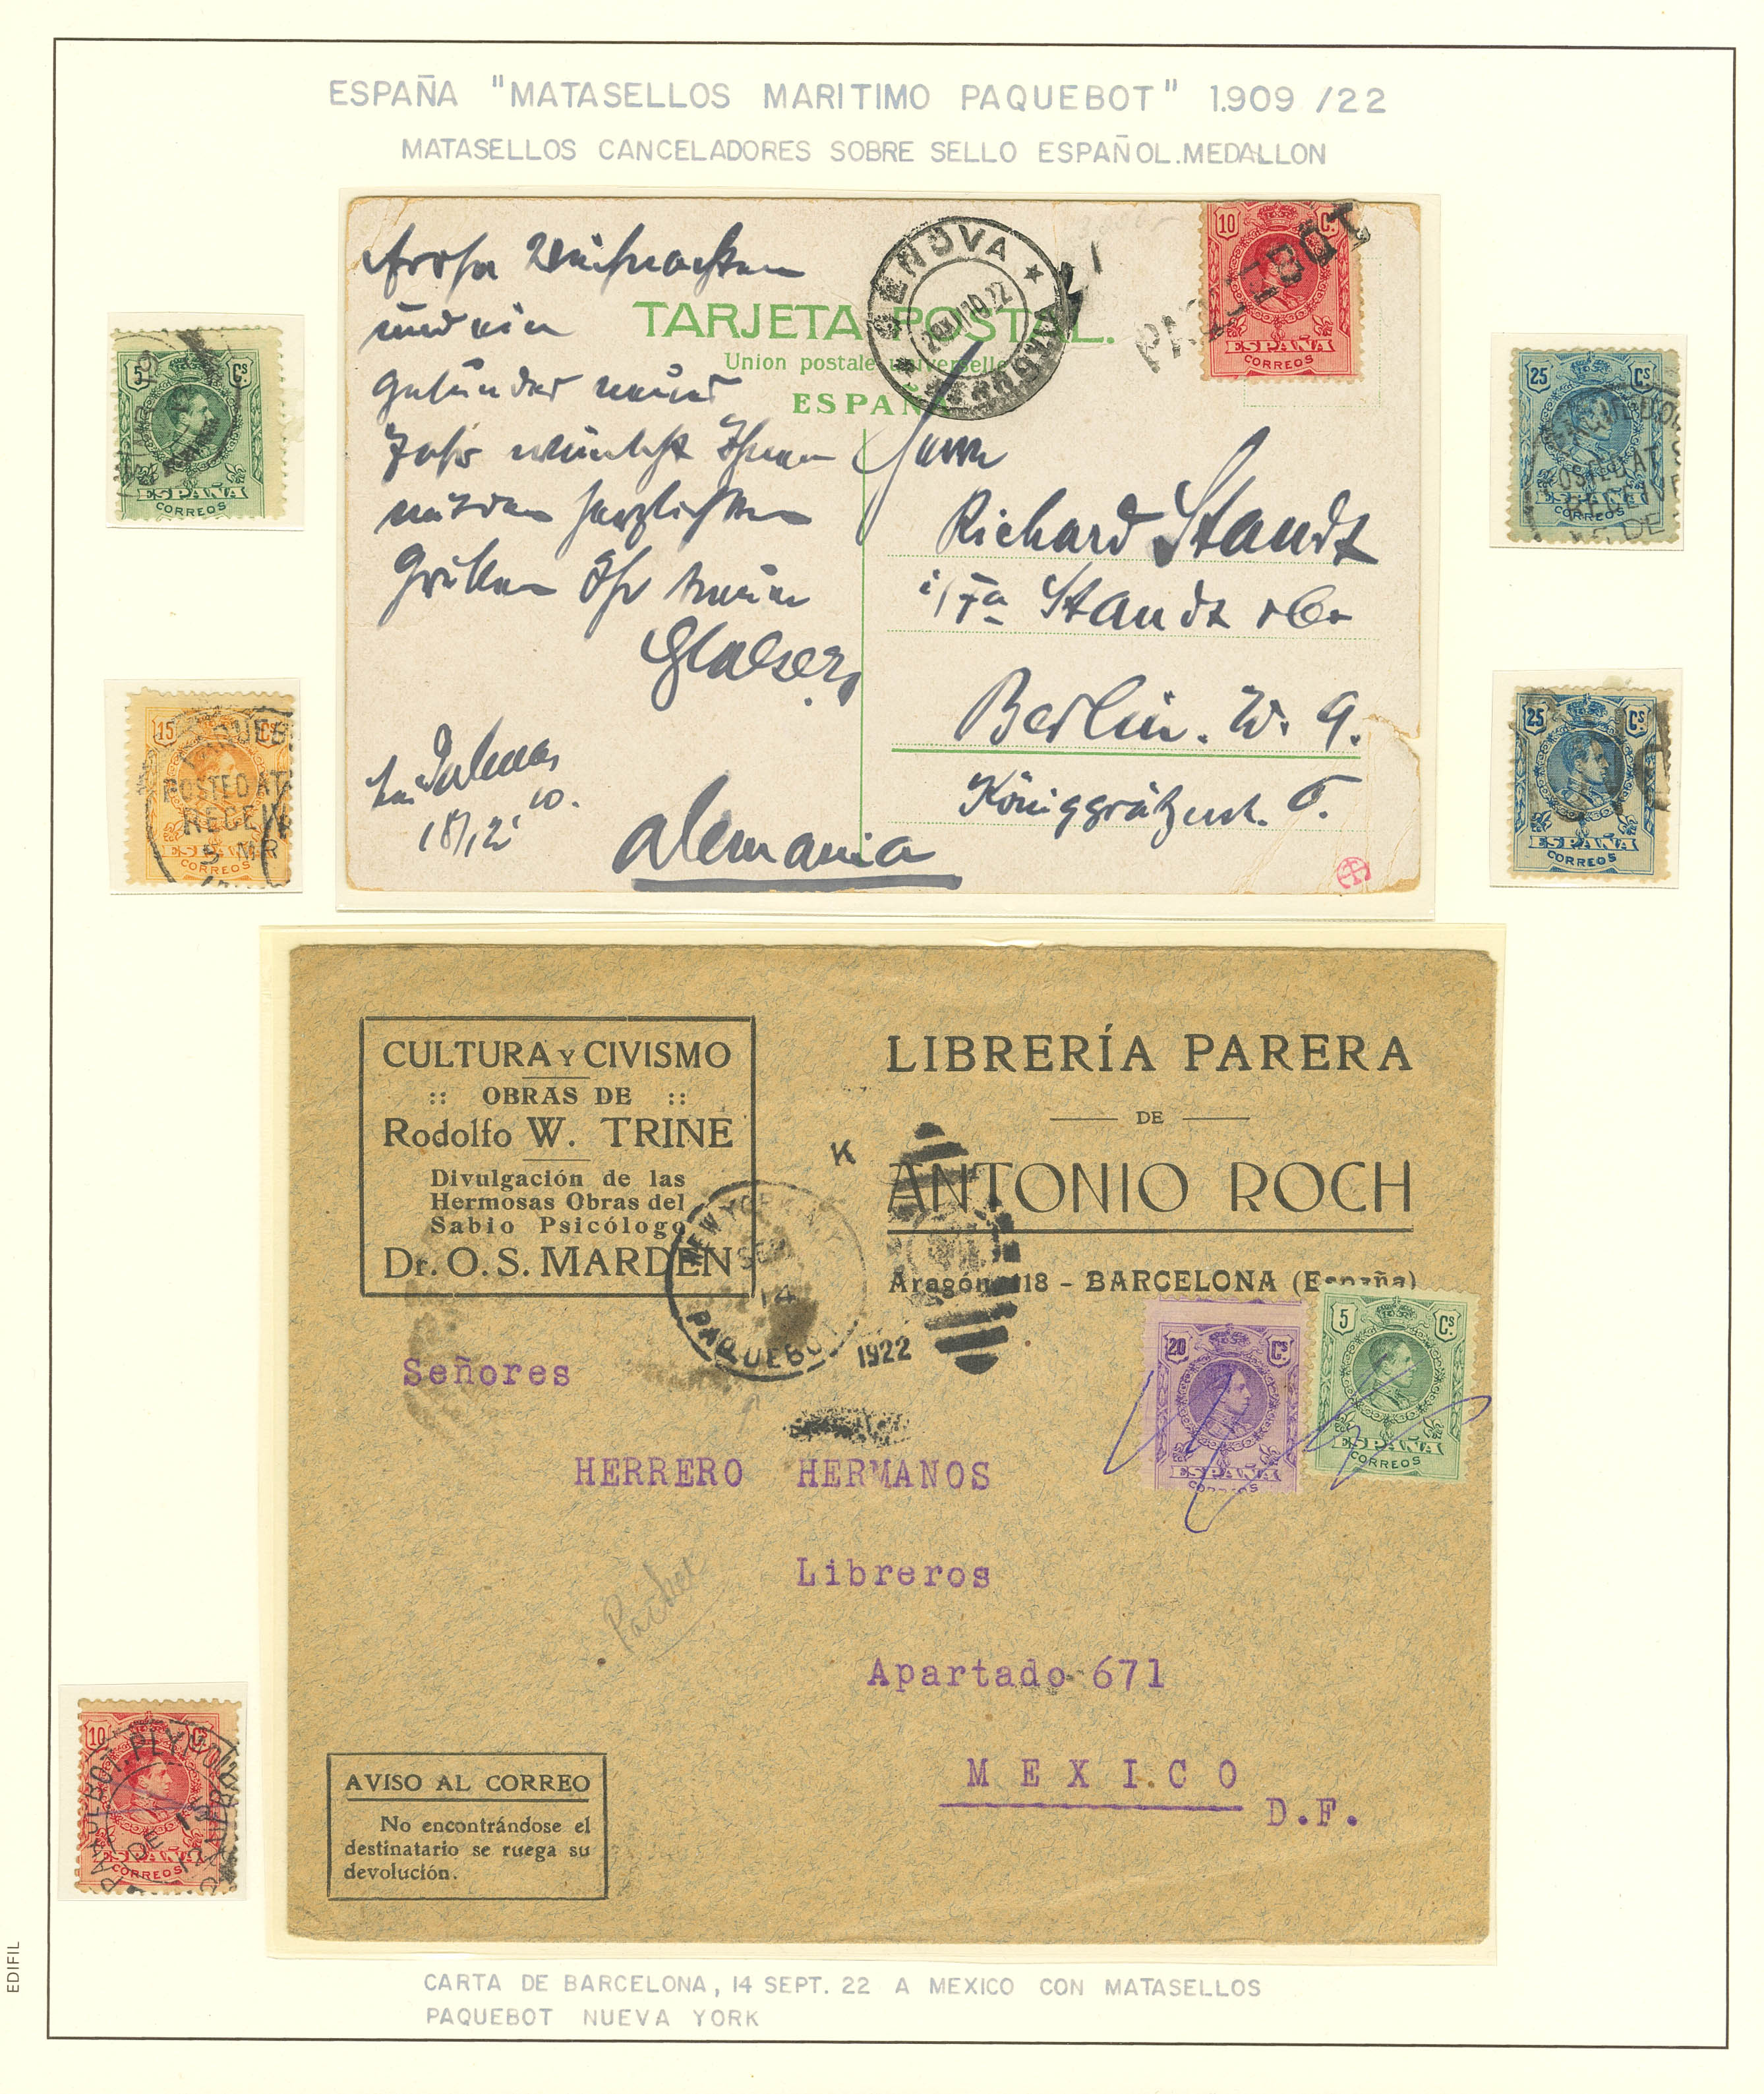 ESPAÑA "MATASELLOS MARITIMO PAQUEBOT" 1.909 /22
MATASELLOS CANCELADORES SOBRE SELLO ESPAÑOL.MEDALLON
Weihnachten
und ein
TARJETA POSTAL.
Union postale universelle
ESPAÑA
GENOVA
10.22
10 Cs.
ESPAÑA
CORREOS
PAQUEBOT
gesundes neues
Jahr wünscht Ihnen
mit den herzlichsten
Grüßen Ihr
Glaeser
Las Palmas
18/12 10.
Herrn
Richard Staudt
i/Fa Staudt & Co
Berlin. W. 9.
Königgrätzerst. 6.
Alemania
5 Cs
ESPAÑA
CORREOS
15 Cs
POSTED AT
RECEIV
MR
ESPAÑA
CORREOS
25 Cs
OSTED AT
RECEIVE
DE
ESPAÑA
CORREOS
25 Cs
ESPAÑA
CORREOS
CULTURA Y CIVISMO
:: OBRAS DE ::
Rodolfo W. TRINE
Divulgación de las
Hermosas Obras del
Sabio Psicólogo
Dr. O. S. MARDEN
LIBRERÍA PARERA
DE
ANTONIO ROCH
Aragón, 118 - BARCELONA (España)
K
NEW YORK N.Y.
SEP
14
PAQUEBOT
1922
20 Cs
ESPAÑA
CORREOS
5 Cs
ESPAÑA
CORREOS
Señores
HERRERO HERMANOS
Libreros
Apartado 671
MEXICO
D.F.
AVISO AL CORREO
No encontrándose el
destinatario se ruega su
devolución.
10 Cs
PAQUEBOT. PLYMOUTH
DE 15
12
ESPAÑA
CORREOS
CARTA DE BARCELONA, 14 SEPT. 22 A MEXICO CON MATASELLOS
PAQUEBOT NUEVA YORK
EDIFIL